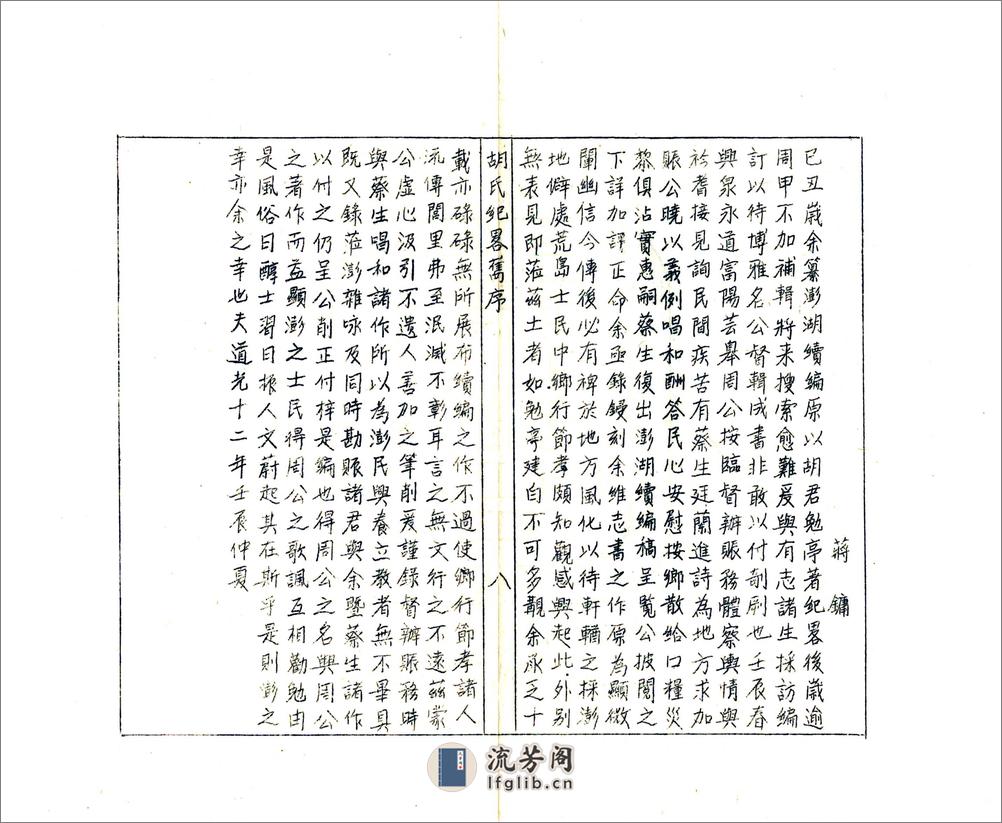 蔣鏞
已丑歲余纂澎湖續編原以胡君勉亭著紀畧後歲逾
周甲不加補輯將来搜索愈難爰與有志諸生採訪編
訂以待博雅名公督輯成書非敢以付剞劂也壬辰春
興泉永道富陽芸皋周公按臨督辦賑務體察輿情與
衿耆接見詢民間疾苦有蔡生廷蘭進詩為地方求加
賑公曉以義例唱和酬答民心安慰按鄉散給口糧災
黎俱沾實惠嗣蔡生復出澎湖續編稿呈覧公披閲之
下詳加評正命余亟錄鋟刻余維志書之作原為顯微
闡幽信今傳後必有裨於地方風化以待軒輶之採澎
地僻處荒島士民中鄉行節孝頗知觀感興起此外别
無表見即蒞兹土者如勉亭建白不可多覯余承乏十
胡氏紀畧舊序
八
載亦碌碌無所展布續編之作不過使鄉行節孝諸人
流傳閭里弗至泯滅不彰耳言之無文行之不遠兹蒙
公虚心汲引不遺人善加之筆削爰謹錄督辦賑務時
與蔡生唱和諸作所以為澎民興養立教者無不畢具
既又錄蒞澎雜咏及同時勘賑諸君與余塈蔡生諸作
以付之仍呈公削正付梓是編也得周公之名與周公
之著作而益顯澎之士民得周公之歌諷互相勸勉由
是風俗日醇士習日振人文蔚起其在斯乎是則澎之
幸亦余之幸也夫道光十二年壬辰仲夏
流芳阁
lfglib.cn